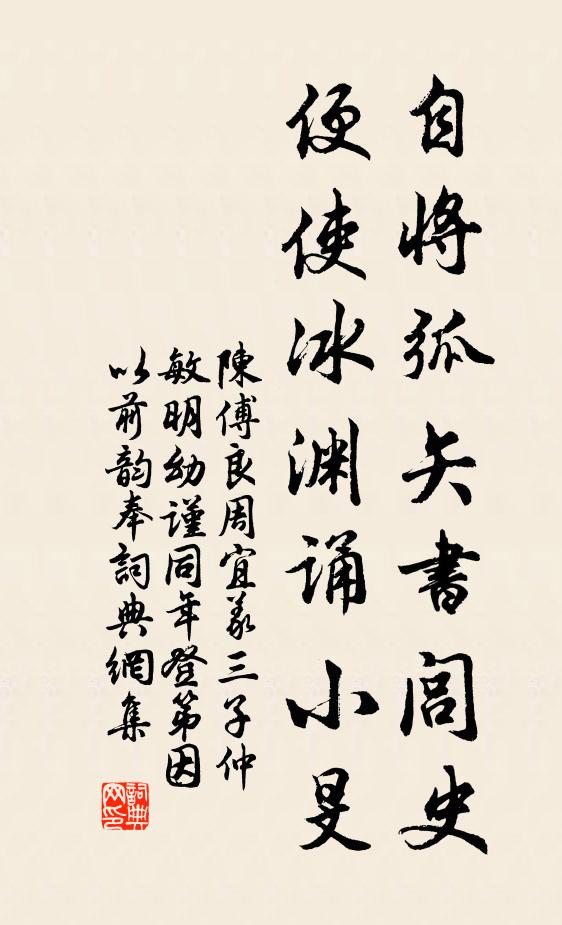 自将弧矢書閭史
便使冰渊誦小旻
陳傅良周宜義三子仲
敏明幼謹同年登第因
以前韵奉詞典網集
詞典网印